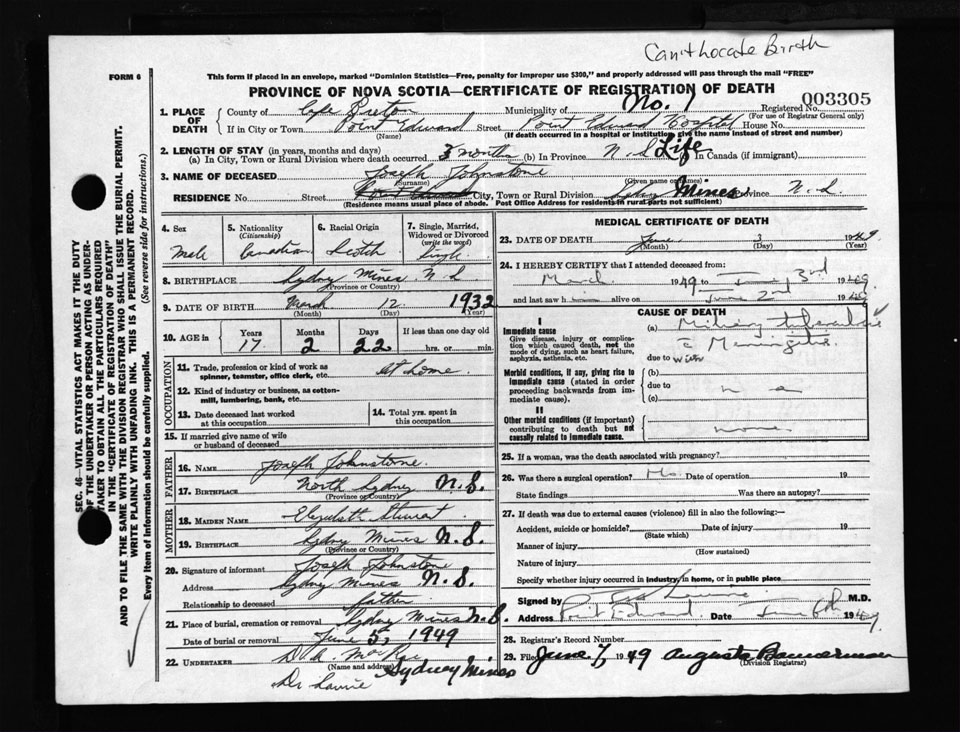 Can't Locate Birth
FORM 6
This form if placed in an envelope, marked "Dominion Statistics—Free, penalty for improper use $300," and properly addressed will pass through the mail "FREE"
PROVINCE OF NOVA SCOTIA—CERTIFICATE OF REGISTRATION OF DEATH
1. PLACE OF DEATH
County of Cape Breton Municipality of No. 1 Registered No. 003305
(For use of Registrar General only)
If in City or Town Point Edward Street Point Edward Hospital House No.
(Name) (If death occurred in a hospital or institution give the name instead of street and number)
2. LENGTH OF STAY (in years, months and days)
(a) In City, Town or Rural Division where death occurred. 3 months (b) In Province N.S. Life In Canada (if immigrant)
3. NAME OF DECEASED Joseph Johnstone
(Surname) (Given name or names)
RESIDENCE No. Street City, Town or Rural Division Sydney Mines Province N.S.
(Residence means usual place of abode. Post Office Address for residents in rural parts not sufficient)
4. Sex Male
5. Nationality (Citizenship) Canadian
6. Racial Origin Scotch
7. Single, Married, Widowed or Divorced (write the word) Single
8. BIRTHPLACE Sydney Mines N.S.
(Province or Country)
9. DATE OF BIRTH March 12 1932
(Month) (Day) (Year)
10. AGE in Years 17 Months 2 Days 22 If less than one day old hrs. or min.
OCCUPATION
11. Trade, profession or kind of work as spinner, teamster, office clerk, etc. at home
12. Kind of industry or business, as cotton-mill, lumbering, bank, etc.
13. Date deceased last worked at this occupation
14. Total yrs. spent in this occupation
15. If married give name of wife or husband of deceased
FATHER
16. NAME Joseph Johnstone
17. BIRTHPLACE North Sydney N.S.
(Province or Country)
MOTHER
18. MAIDEN NAME Elizabeth Stewart
19. BIRTHPLACE Sydney Mines N.S.
(Province or Country)
20. Signature of informant Joseph Johnstone
Address Sydney Mines N.S.
Relationship to deceased father
21. Place of burial, cremation or removal Sydney Mines N.S.
Date of burial or removal June 5, 1949
22. UNDERTAKER D. A. MacRae
(Name and address) Sydney Mines
Dr Lavrie
MEDICAL CERTIFICATE OF DEATH
23. DATE OF DEATH June 3 1949
(Month) (Day) (Year)
24. I HEREBY CERTIFY that I attended deceased from:
March 1949 to June 3rd 1949
and last saw him alive on June 2nd 1949
CAUSE OF DEATH
I
Immediate cause
Give disease, injury or complication which caused death, not the mode of dying, such as heart failure, asphyxia, asthenia, etc.
(a) Miliary tuberculosis
c Meningitis
due to with
Morbid conditions, if any, giving rise to immediate cause (stated in order proceeding backwards from immediate cause).
(b)
due to n a
(c)
II
Other morbid conditions (if important) contributing to death but not causally related to immediate cause.
none
25. If a woman, was the death associated with pregnancy?
26. Was there a surgical operation? No. Date of operation 19
State findings Was there an autopsy?
27. If death was due to external causes (violence) fill in also the following:—
Accident, suicide or homicide? Date of injury 19
(State which)
Manner of injury
(How sustained)
Nature of injury
Specify whether injury occurred in industry, in home, or in public place
Signed by M.D.
Address Point Edward Date June 6th 1949
28. Registrar's Record Number
29. Filed June 7, 1949 Augusta Bannerman
(Division Registrar)
SEC. 46—VITAL STATISTICS ACT MAKES IT THE DUTY
OF THE UNDERTAKER OR PERSON ACTING AS UNDER-
TAKER TO OBTAIN ALL THE PARTICULARS REQUIRED
IN THE "CERTIFICATE OF REGISTRATION OF DEATH"
AND TO FILE THE SAME WITH THE DIVISION REGISTRAR WHO SHALL ISSUE THE BURIAL PERMIT.
WRITE PLAINLY WITH UNFADING INK. THIS IS A PERMANENT RECORD.
Every item of information should be carefully supplied. (See reverse side for instructions.)